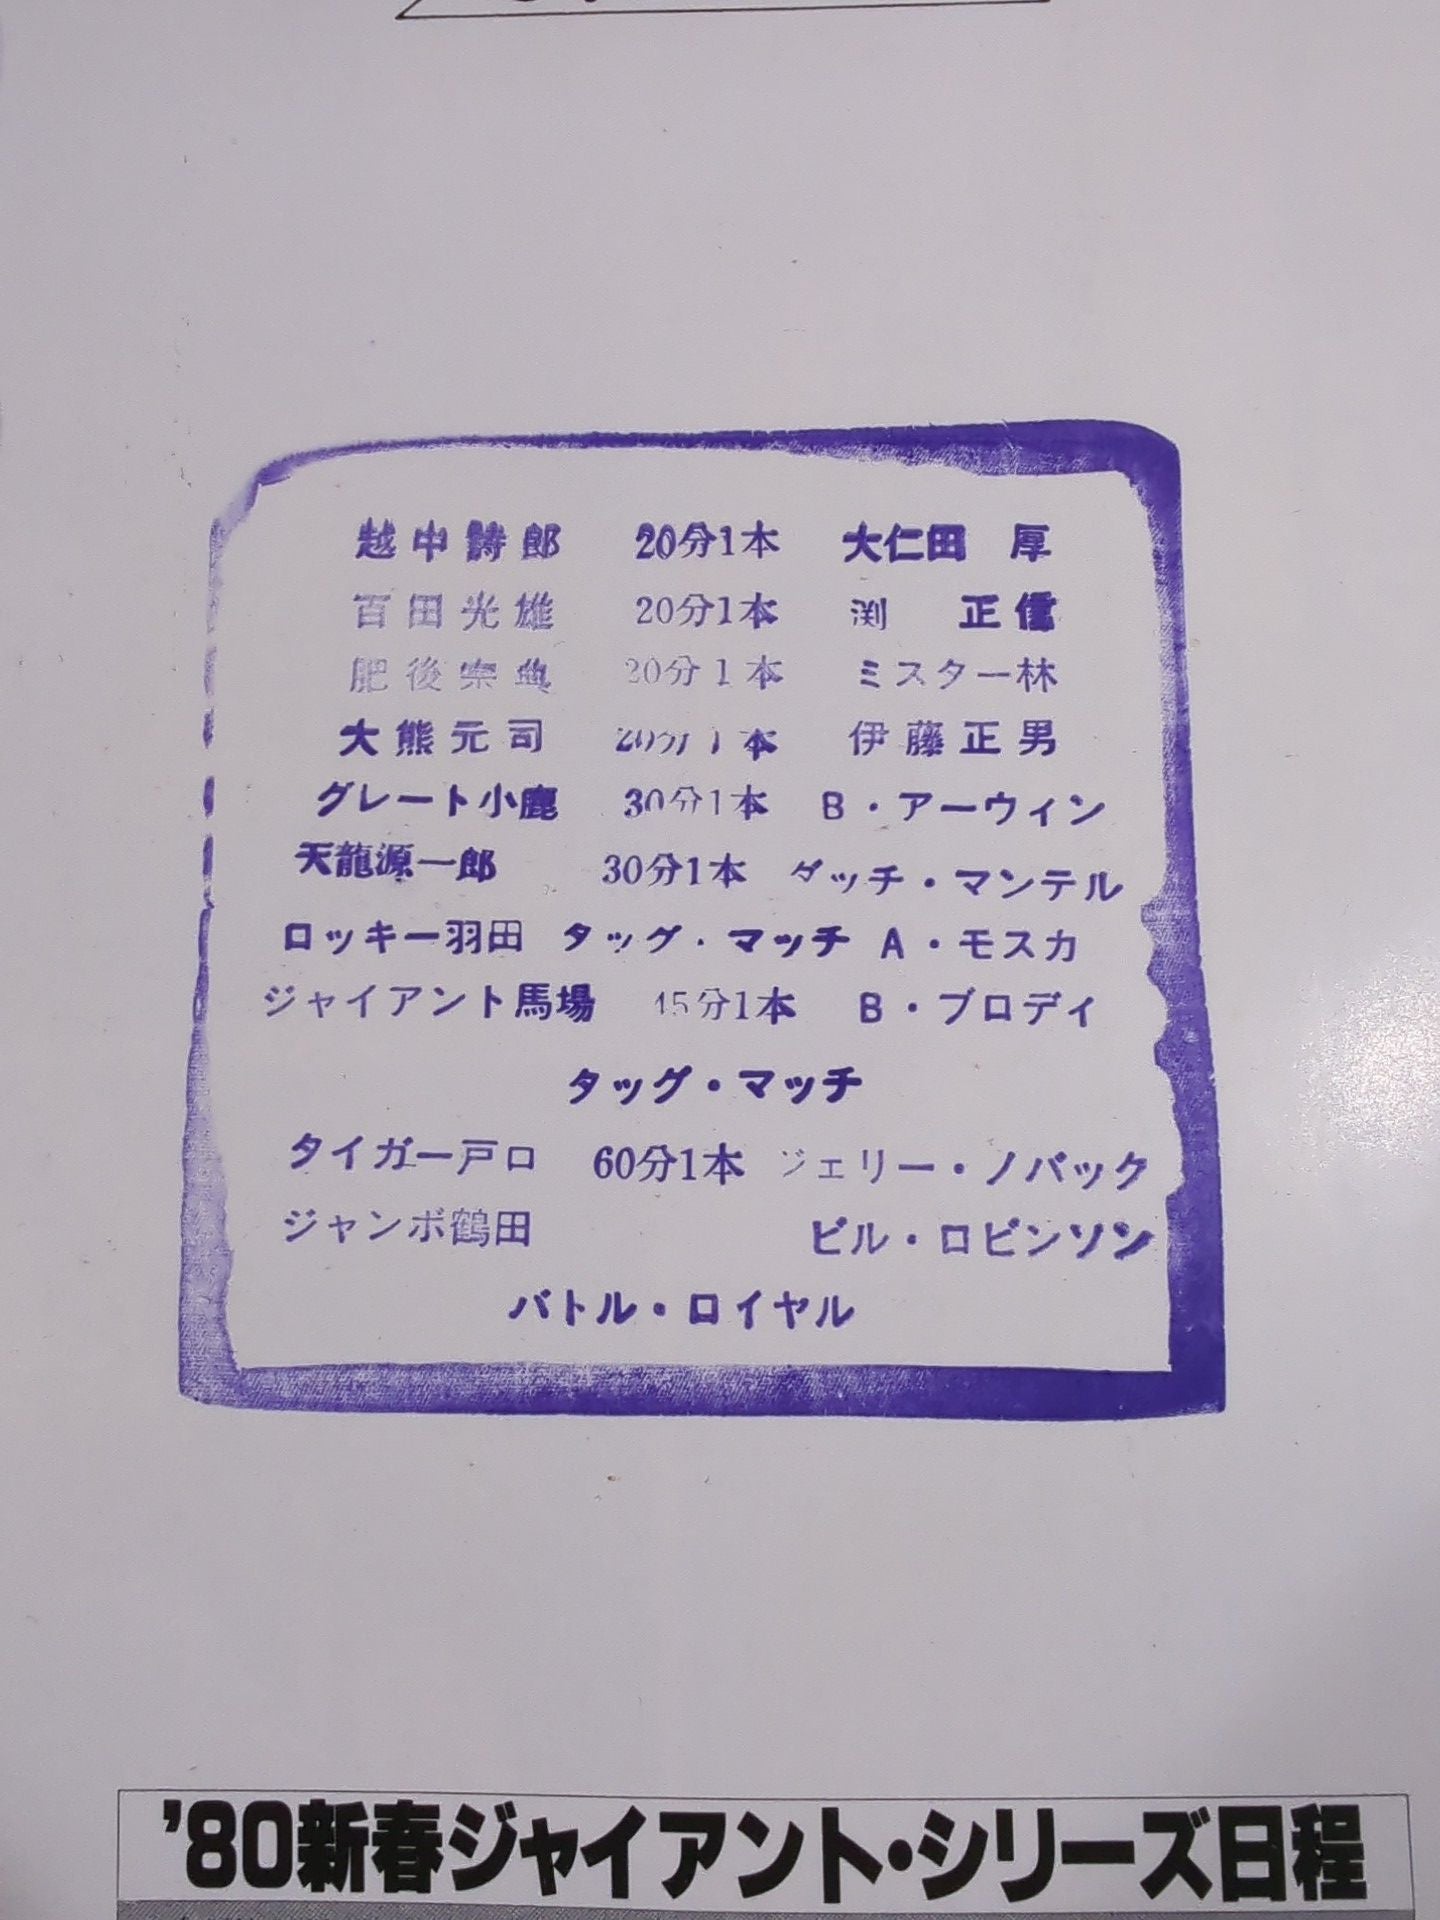 越中詩郎 20分1本 大仁田 厚
百田光雄 20分1本 渕 正信
肥後宗典 20分1本 ミスター林
大熊元司 20分1本 伊藤正男
グレート小鹿 30分1本 B・アーウィン
天龍源一郎 30分1本 ダッチ・マンテル
ロッキー羽田 タッグ・マッチ A・モスカ
ジャイアント馬場 45分1本 B・ブロディ
タッグ・マッチ
タイガー戸口 60分1本 ジェリー・ノバック
ジャンボ鶴田 ビル・ロビンソン
バトル・ロイヤル
'80新春ジャイアント・シリーズ日程